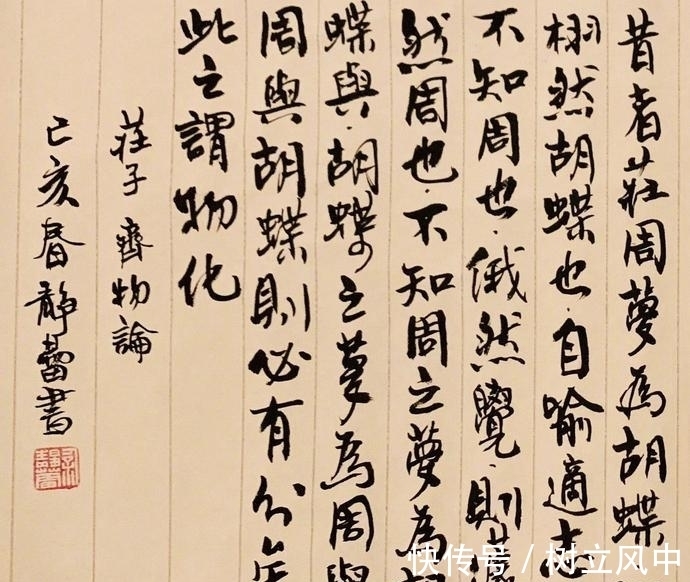 昔者莊周夢為胡蝶
栩然胡蝶也自喻適志
不知周也俄然覺則
然周也不知周之夢為
蝶與胡蝶之夢為周與
周與胡蝶則必有分
此之謂物化
莊子 齊物論
己亥春靜蕾書
快传号/树立风中